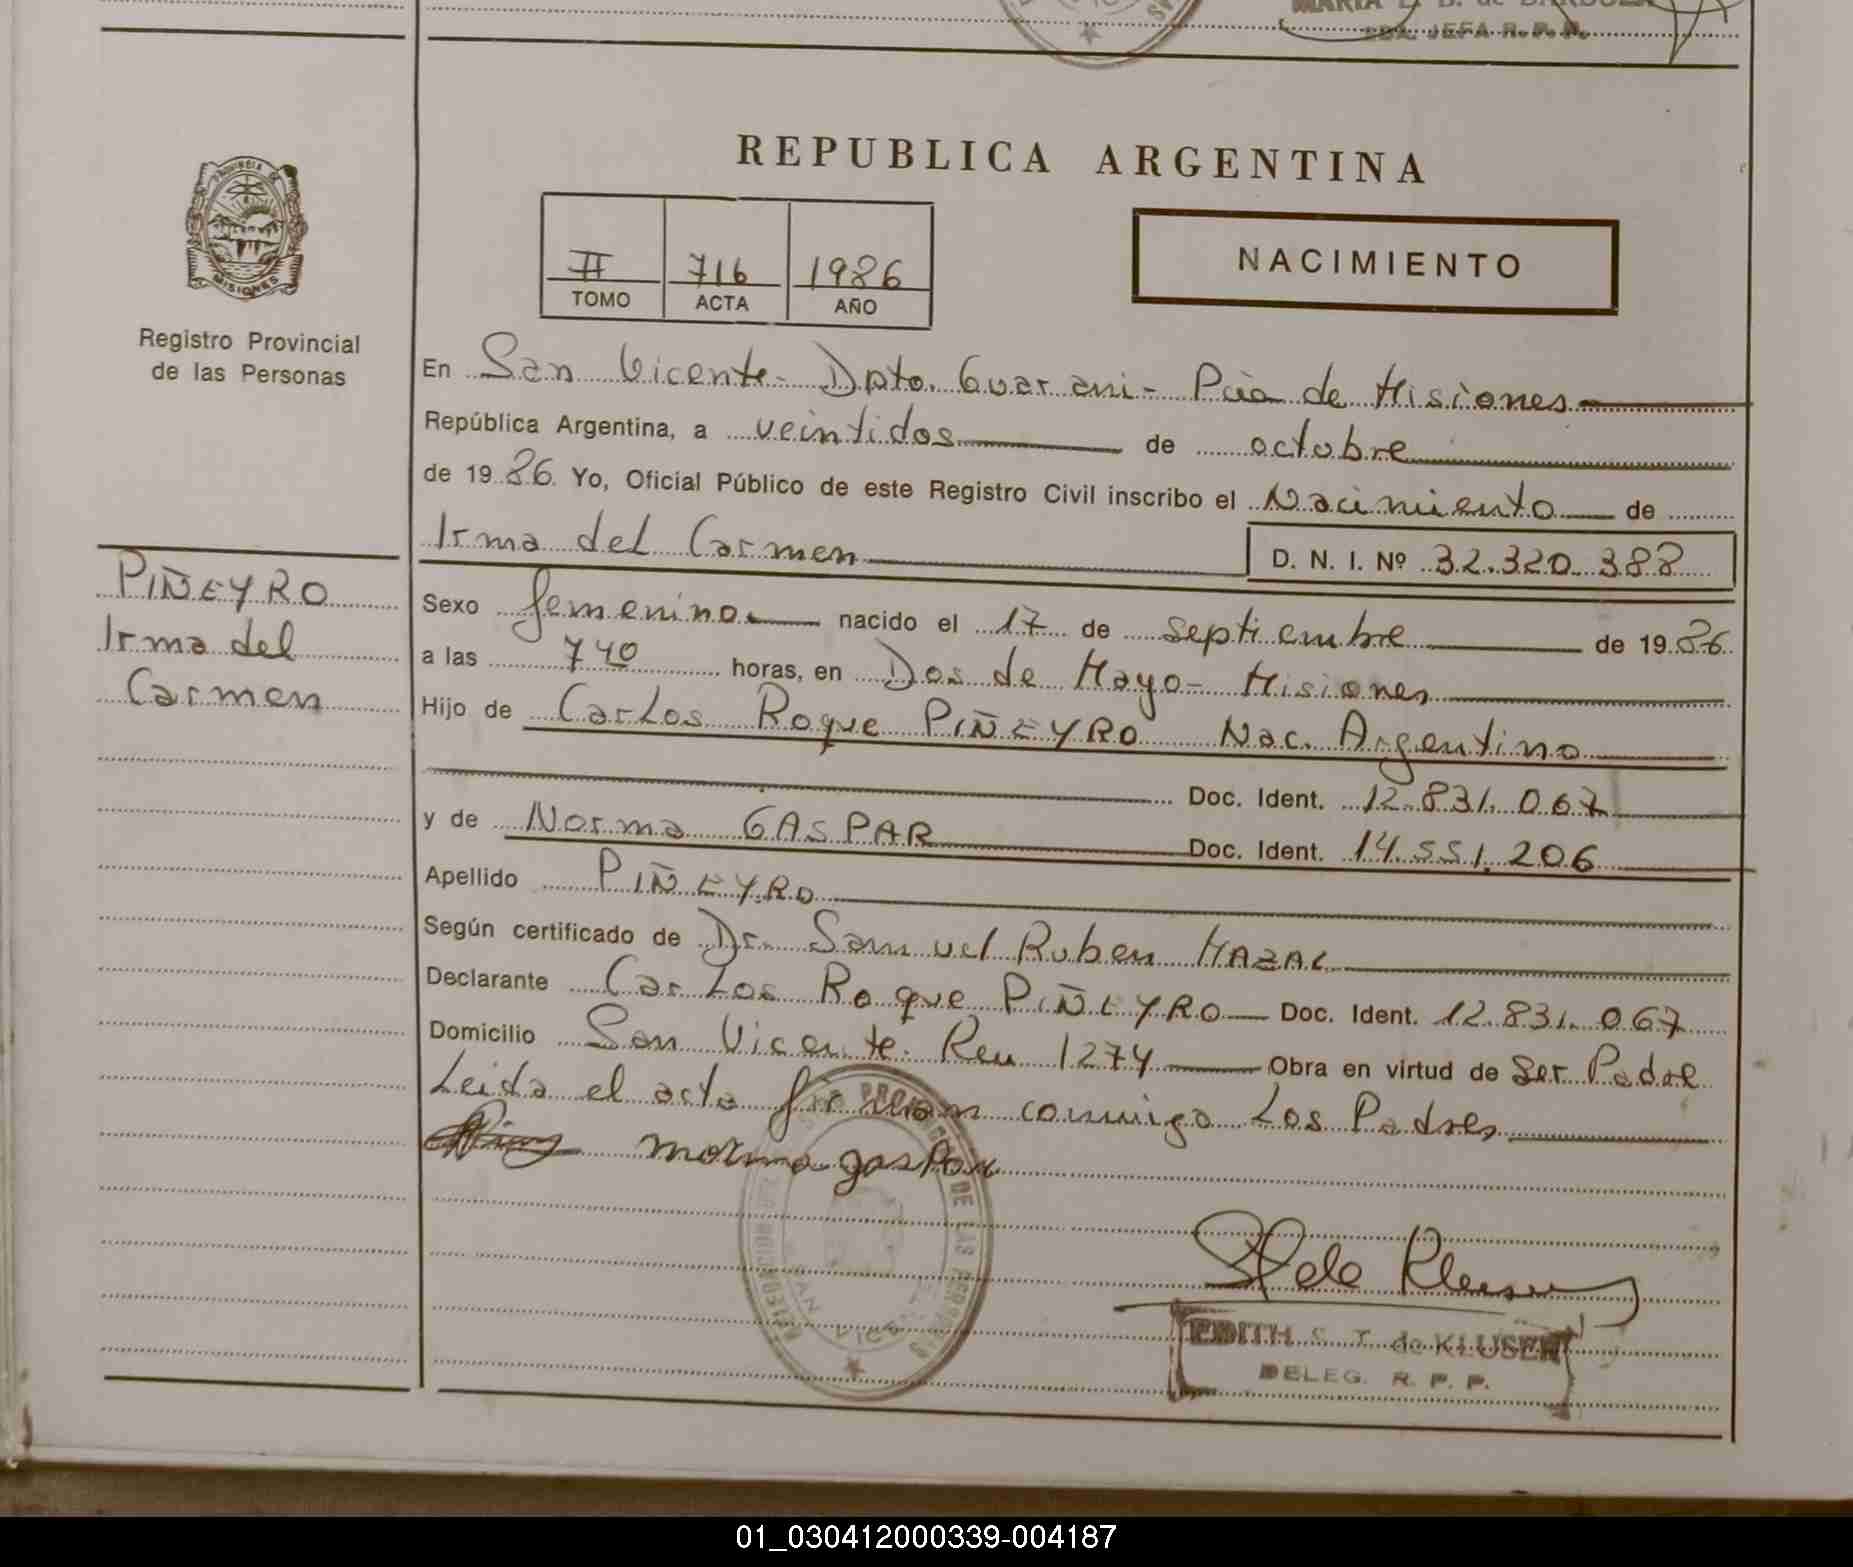 EDA. JEFA R. P. P.
REPUBLICA ARGENTINA
PROVINCIA DE
MISIONES
II 716 1986
TOMO ACTA AÑO
NACIMIENTO
Registro Provincial
de las Personas
En San Vicente - Dpto. Guarani - Pcia de Misiones
República Argentina, a veintidos de octubre
de 1986 Yo, Oficial Público de este Registro Civil inscribo el Nacimiento de
Irma del Carmen D. N. I. Nº 32.320.388
PIÑEYRO
Irma del
Carmen
Sexo femenino nacido el 17 de septiembre de 1986
a las 740 horas, en Dos de Mayo - Misiones
Hijo de Carlos Roque PIÑEYRO Nac. Argentino
Doc. Ident. 12.831.067
y de Norma GASPAR Doc. Ident. 14.551.206
Apellido PIÑEYRO
Según certificado de Dr. Samuel Ruben
Declarante Carlos Roque PIÑEYRO Doc. Ident. 12.831.067
Domicilio San Vicente. 1274 Obra en virtud de ser Padre
Leida el acta firman conmigo Los Padres
norma gaspar
SAN VICENTE
de Kluser
EDITH S. T. de KLUSER
DELEG. R. P. P.
01_030412000339-004187